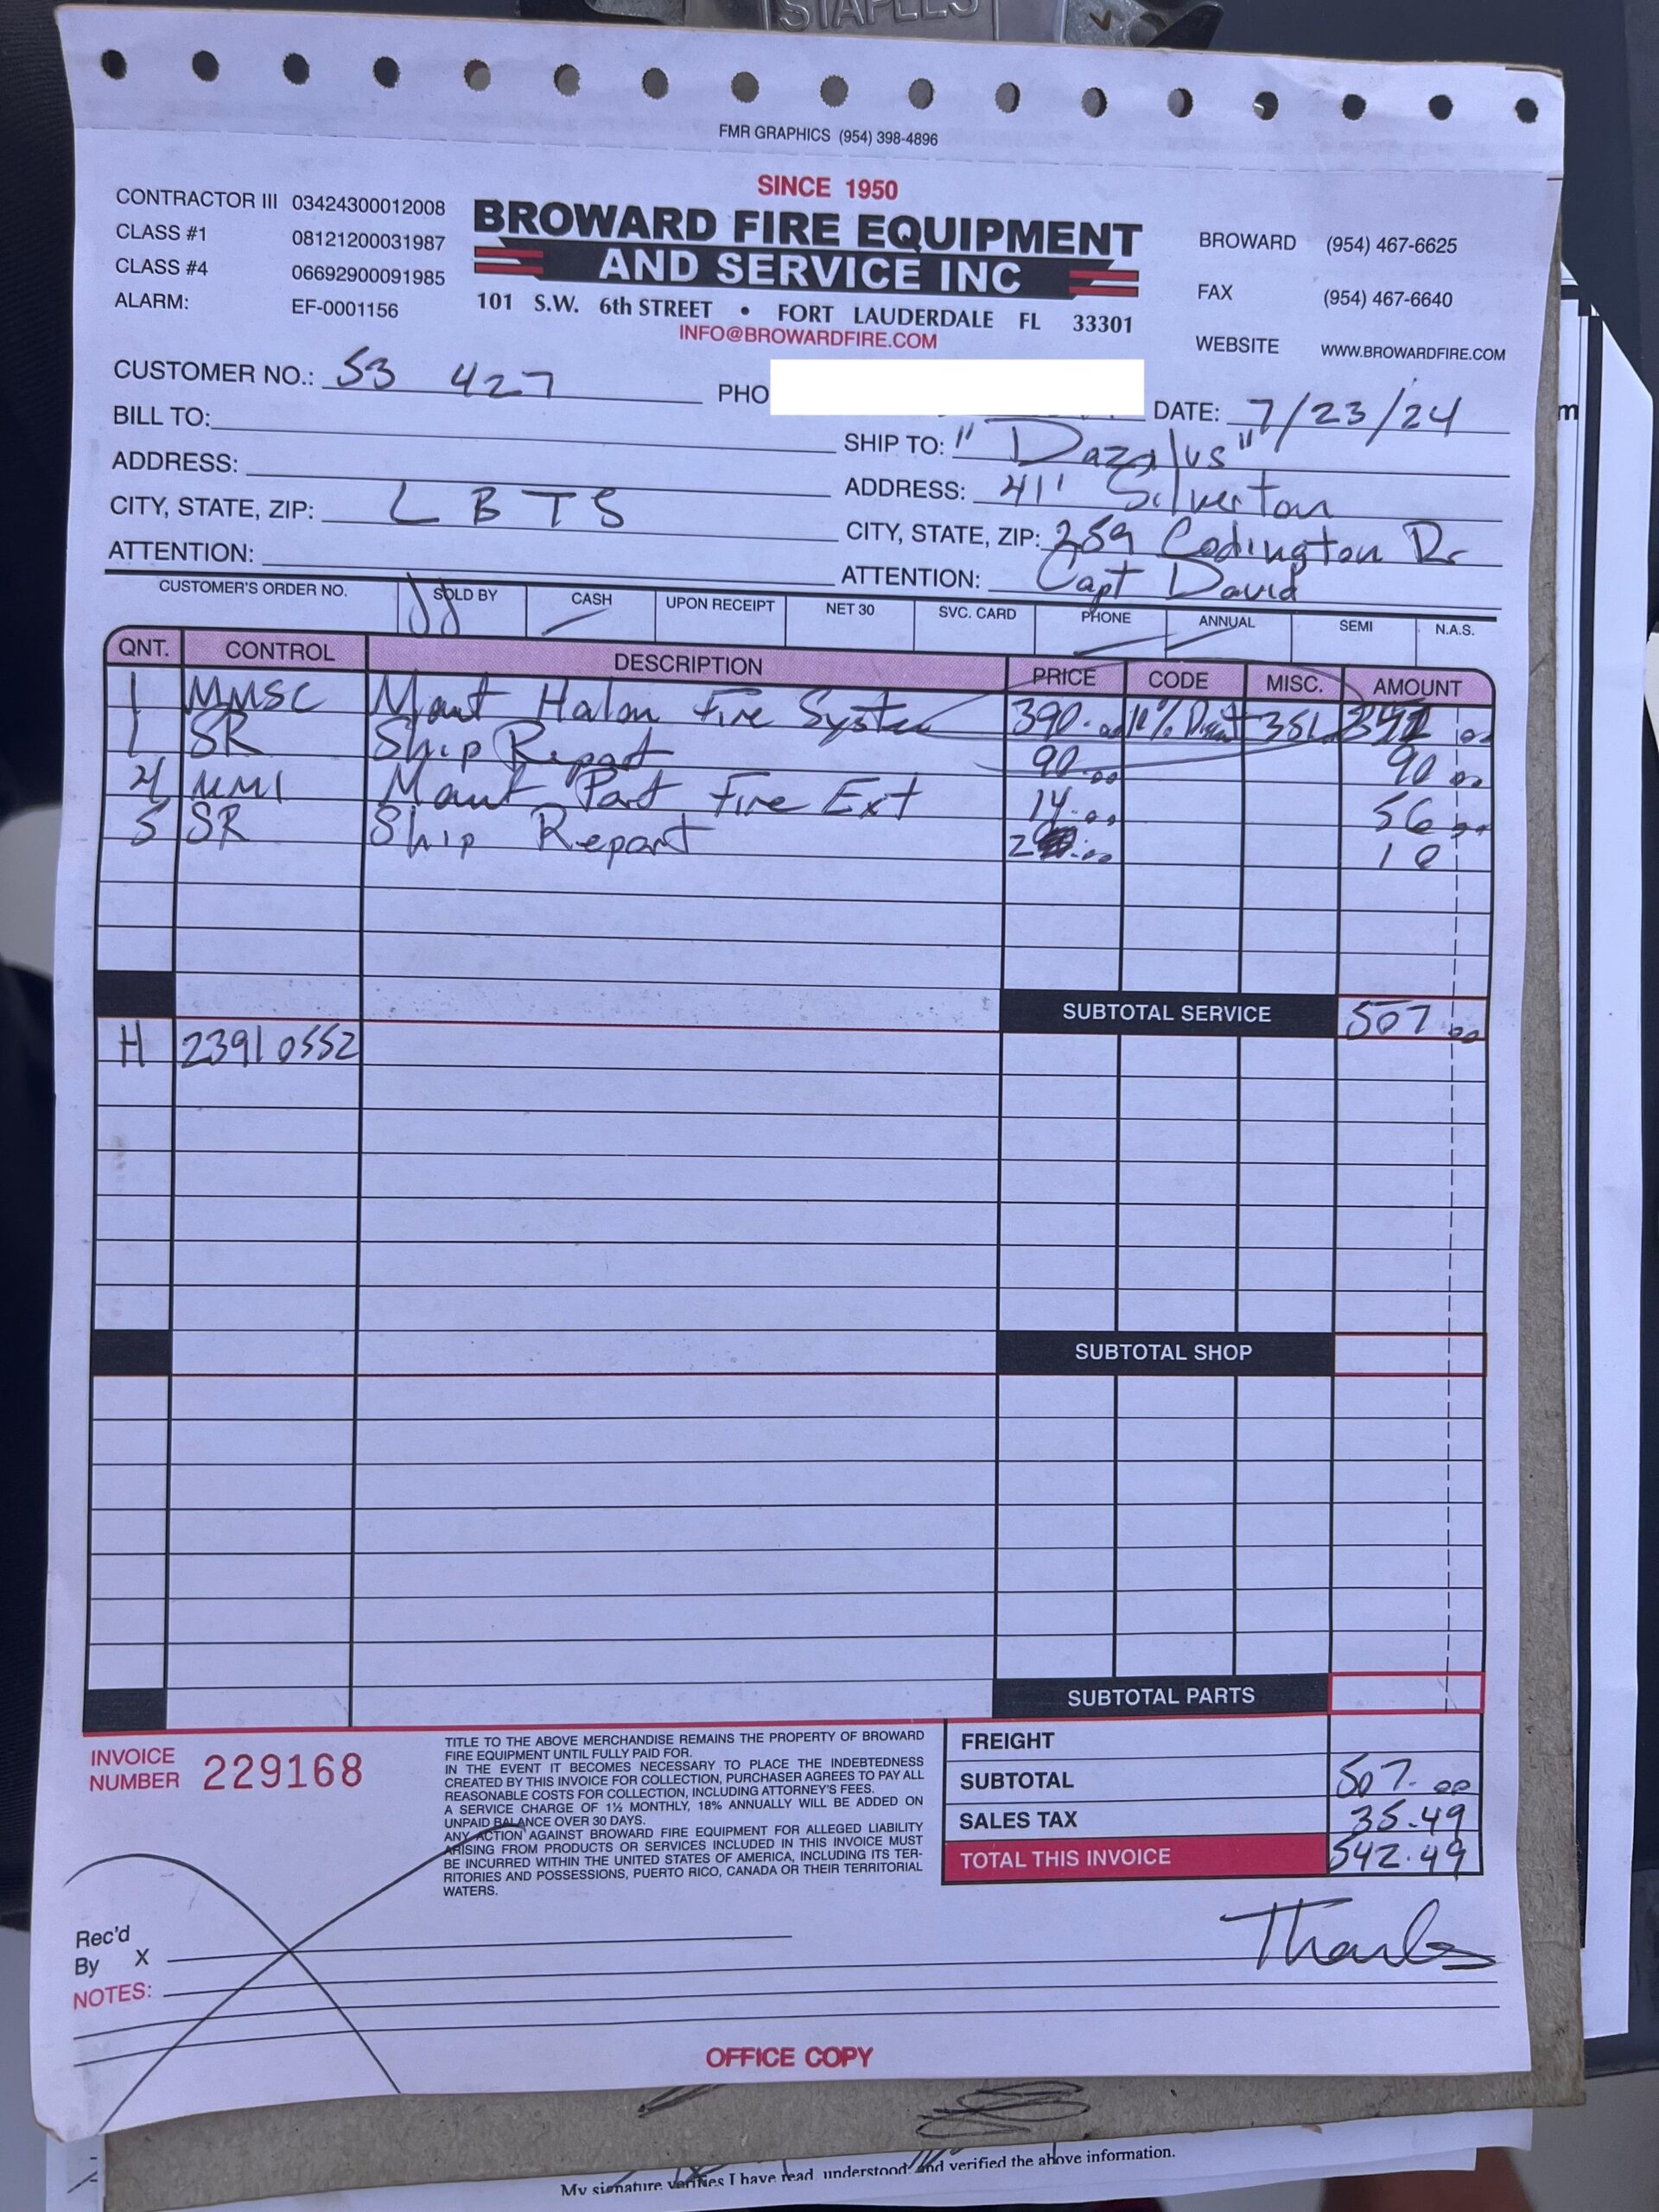 STAPLES
FMR GRAPHICS (954) 398-4896
SINCE 1950
CONTRACTOR III 03424300012008
CLASS #1 08121200031987
CLASS #4 06692900091985
ALARM: EF-0001156
BROWARD FIRE EQUIPMENT
AND SERVICE INC
101 S.W. 6th STREET • FORT LAUDERDALE FL 33301
INFO@BROWARDFIRE.COM
BROWARD (954) 467-6625
FAX (954) 467-6640
WEBSITE WWW.BROWARDFIRE.COM
CUSTOMER NO.: 53 427 PHO DATE: 7/23/24
BILL TO: SHIP TO: "Dazalus"
ADDRESS: ADDRESS: 41' Silverton
CITY, STATE, ZIP: LBTS CITY, STATE, ZIP: 259 Codington Dr
ATTENTION: ATTENTION: Capt David
CUSTOMER'S ORDER NO. SOLD BY CASH UPON RECEIPT NET 30 SVC. CARD PHONE ANNUAL SEMI N.A.S.
JJ
QNT. CONTROL DESCRIPTION PRICE CODE MISC. AMOUNT
1 MMSC Maut Halon Fire System 390.00 10% 351
1 SR Ship Report 90.00 90.00
4 MM1 Maut Port Fire Ext 14.00 56.00
5 SR Ship Report 2 .00 10
SUBTOTAL SERVICE 507.00
H 23910552
SUBTOTAL SHOP
SUBTOTAL PARTS
INVOICE
NUMBER 229168
TITLE TO THE ABOVE MERCHANDISE REMAINS THE PROPERTY OF BROWARD
FIRE EQUIPMENT UNTIL FULLY PAID FOR.
IN THE EVENT IT BECOMES NECESSARY TO PLACE THE INDEBTEDNESS
CREATED BY THIS INVOICE FOR COLLECTION, PURCHASER AGREES TO PAY ALL
REASONABLE COSTS FOR COLLECTION, INCLUDING ATTORNEY'S FEES.
A SERVICE CHARGE OF 1½ MONTHLY, 18% ANNUALLY WILL BE ADDED ON
UNPAID BALANCE OVER 30 DAYS.
ANY ACTION AGAINST BROWARD FIRE EQUIPMENT FOR ALLEGED LIABILITY
ARISING FROM PRODUCTS OR SERVICES INCLUDED IN THIS INVOICE MUST
BE INCURRED WITHIN THE UNITED STATES OF AMERICA, INCLUDING ITS TER-
RITORIES AND POSSESSIONS, PUERTO RICO, CANADA OR THEIR TERRITORIAL
WATERS.
FREIGHT
SUBTOTAL 507.00
SALES TAX 35.49
TOTAL THIS INVOICE 542.49
Thanks
Rec'd
By X
NOTES:
OFFICE COPY
My signature verifies I have read, understood and verified the above information.